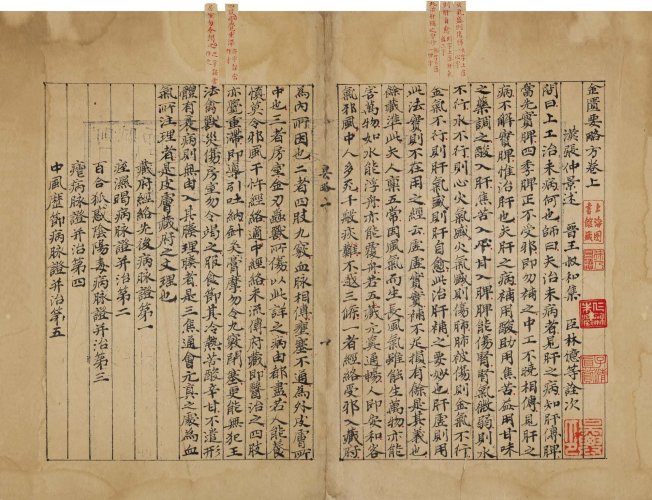 金匱要略方卷上
漢張仲景述 晉王叔和集 臣林億等詮次
問曰上工治未病何也師曰夫治未病者見肝之病知肝傳脾
當先實脾四季脾王不受邪即勿補之中工不曉相傳見肝之
病不解實脾惟治肝也夫肝之病補用酸助用焦苦益用甘味
之藥調之酸入肝焦苦入心甘入脾脾能傷腎腎氣微弱則水
不行水不行則心火氣盛火氣盛則傷肺肺被傷則金氣不行
金氣不行則肝氣盛肝自愈此治肝補脾之要妙也肝虛則用
此法實則不在用之經云虛虛實實補不足損有餘是其義也
餘藏準此夫人稟五常因風氣而生長風氣雖能生萬物亦能
害萬物如水能浮舟亦能覆舟若五藏元真通暢人即安和客
氣邪風中人多死千般疢難不越三條一者經絡受邪入藏府
為內所因也二者四肢九竅血脉相傳壅塞不通為外皮膚所
中也三者房室金刃蟲獸所傷以此詳之病由都盡若人能養
慎莫令邪風干忤經絡適中經絡未流傳府藏即醫治之四肢
亦覺重滯即導引吐納針灸膏摩勿令九竅閉塞更能無犯王
法禽獸災傷房室勿令竭之服食節其冷熱苦酸辛甘不遺形
體有衰病則無由入其腠理腠者是三焦通會元真之處為血
氣所注理者是皮膚藏府之文理也
藏府經絡先後病脉證第一
痙濕暍病脉證并治第二
百合狐惑陰陽毒病脉證并治第三
瘧病脉證并治第四
中風歷節病脉證并治第五
上海圖書館藏